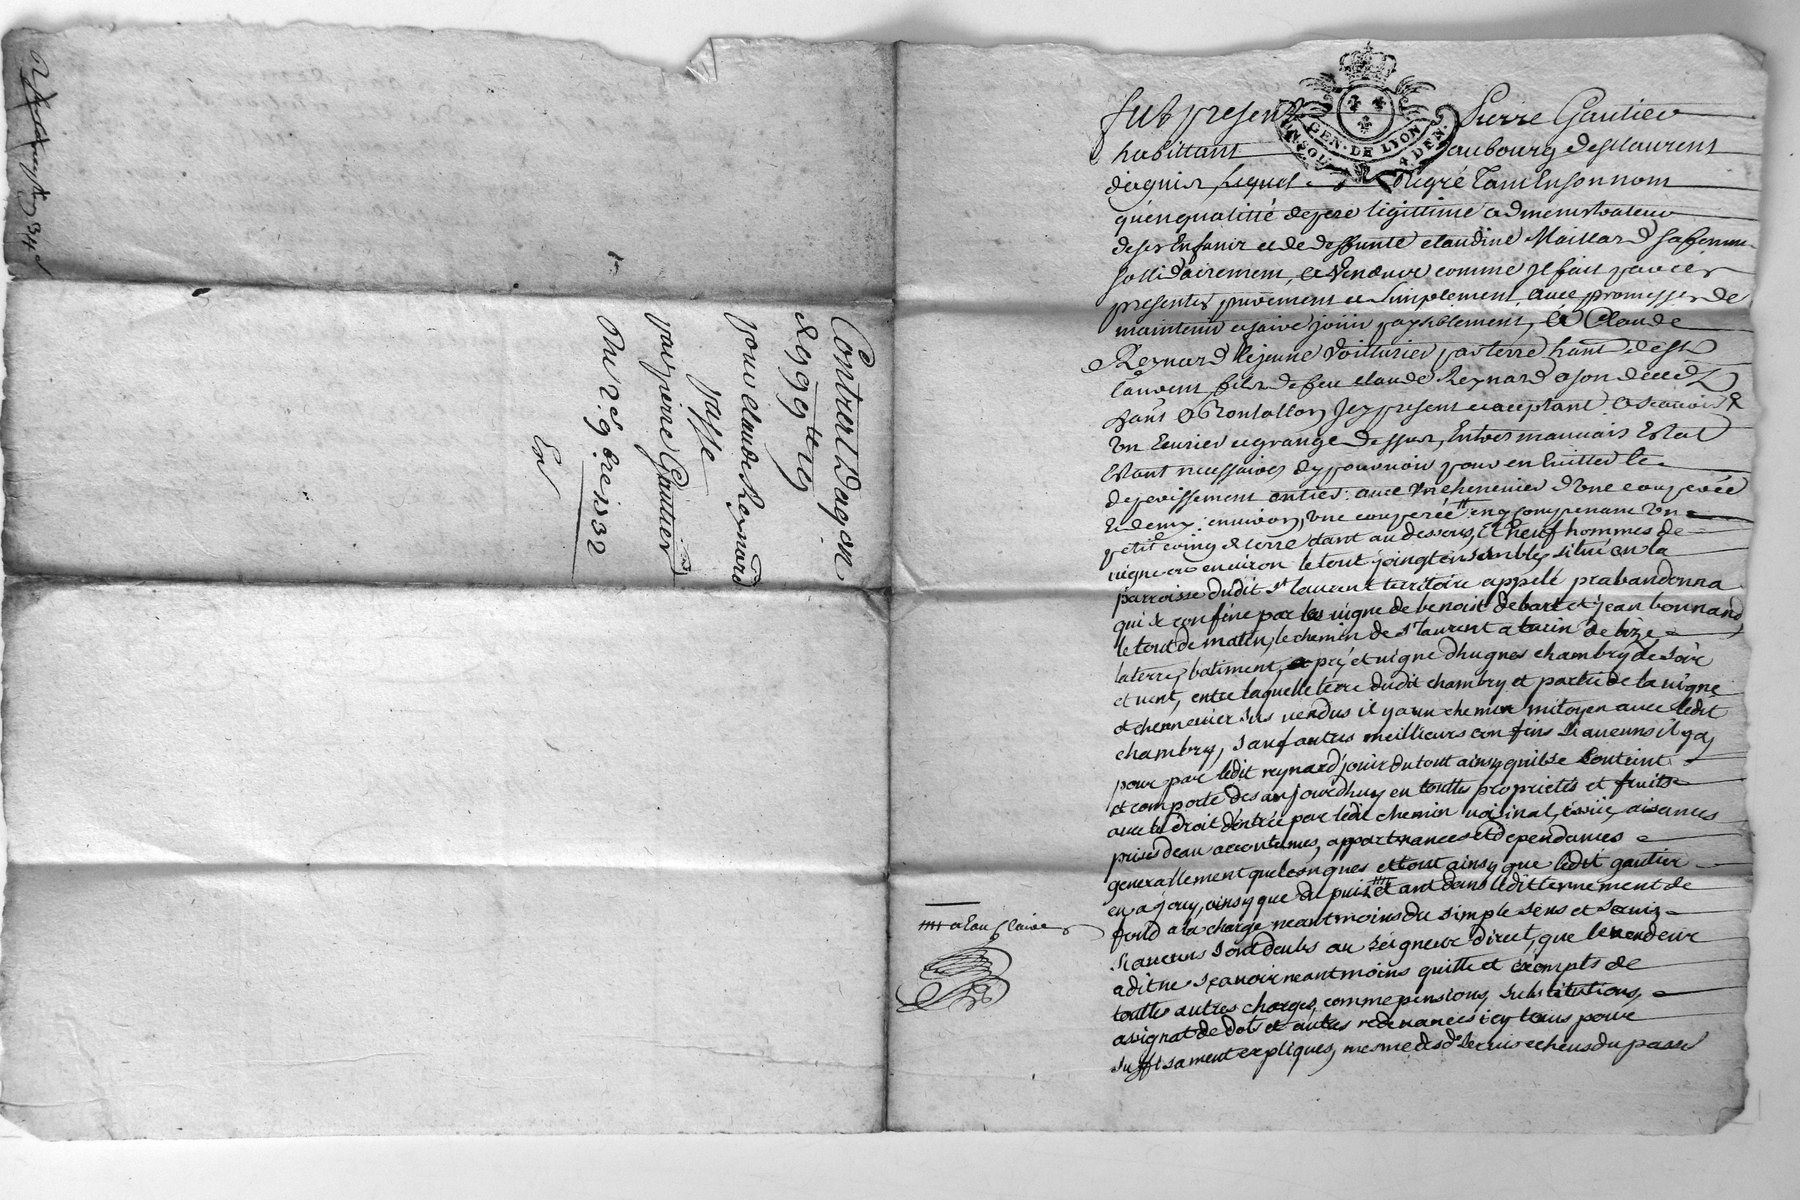 Contract d'acq.on
& qq.tereq
pour claude Reynard
passe
par pierre Gautier
Du 2e. 9bre 1732
fut present Pierre Gautier
habittant aubourg de st laurent
dagnis lequel degré tant en son nom
qu'en qualitté de pere legittime administrateur
de ses Enfants et de deffunte claudine Maillard sa femme
sollidairement, a Vendeu comme jl fait par ces
presentes purement et simplement avec promesses de
maintenir et faire jouir paysiblement, A Claude
Reynard le jeune Voiturier par terre hant. de st
laurent fils de feu claude Reynard a son deced
Vans A Rontallon jcy present et acceptant A scavoir
Un Cuvier et grange dessus, En tres mauvais Estat
Estant necessaires dy pourvoir pour en Euitter le
deperissement entier. avec Un chenevier d'Une couperée
Et demy. environ, Une couperée en y comprenant Un
petit coing de terre étant au dessous, Et neuf hommes de
vigne ou environ le tout joingt ensembles situé en la
parroisse dudit st laurent territoire appelé prabandonna
qui se confine par les vigne de benoist debart et jean bonnand
le tout de matin, le chemin de st laurent a turin de bize
la terre, batiment, pré et vigne d'hugues chambry de soir
et vent, entre laquelle terre dudit chambry et partie de la vigne
et chennevier sus vendus il y a un chemin mitoyen avec ledit
chambry, sauf autres meilleurs confins si aucuns il y a,
pour par ledit reynard jouir du tout ainsy quil se contient
et comporte des aujourdhuy en toutte proprietés et fruits
avec le droit dentrée par ledit chemin voisinal, issüe, aisances
prises d'eau accoutumés, appartenances et dependances
generallement quelconques et tout ainsy que ledit gautier
en a jouy, ainsy que du puis "" etant dans ledit tennement de
fond a la charge neantmoins du simple sens et servis
si aucuns sont deubs au seigneur direct, que le vendeur
a dit ne scavoir neantmoins quitte et exempts de
toutte autres charges, comme pensions, substitutions,
assignat de dots et autres redevances icy tenus pour
suffisament expliqués, mesme des d. servis echeus du passé
"" a Eau Claire